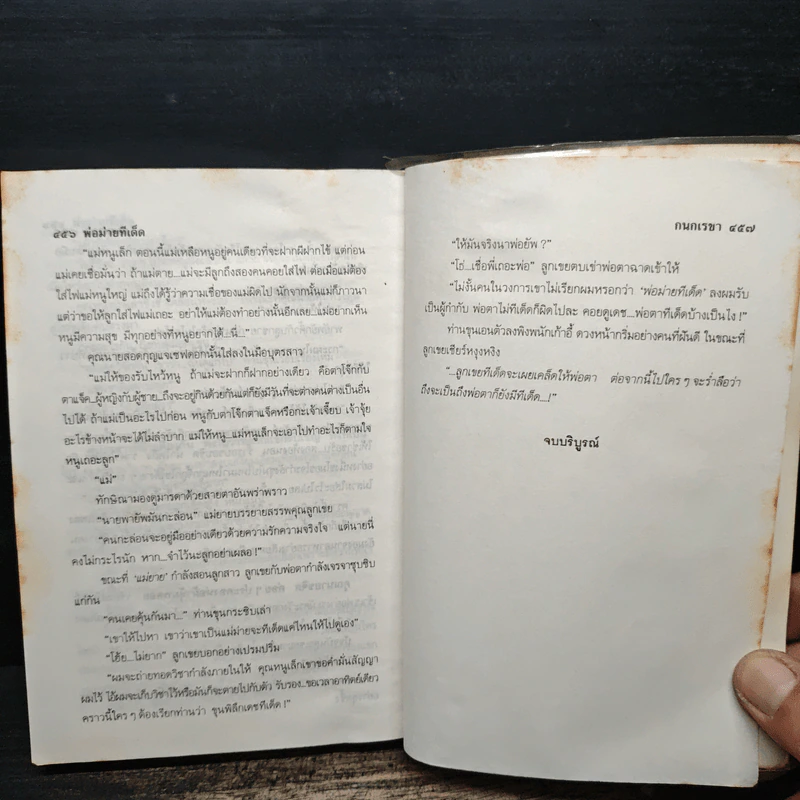 ๔๕๖ พ่อม่ายทีเด็ด
"แม่หนูเล็ก ตอนนี้แม่เหลือหนูอยู่คนเดียวที่จะฝากผีฝากไข้ แต่ก่อน
แม่เคยเชื่อมั่นว่า ถ้าแม่ตาย...แม่จะมีลูกถึงสองคนคอยใส่ไฟ ต่อเมื่อแม่ต้อง
ใส่ไฟแม่หนูใหญ่ แม่ถึงได้รู้ว่าความเชื่อของแม่ผิดไป นักจากนั้นแม่ก็ภาวนา
แต่ว่าขอให้ลูกใส่ไฟแม่เถอะ อย่าให้แม่ต้องทำอย่างนั้นอีกเลย...แม่อยากเห็น
หนูมีความสุข มีทุกอย่างที่หนูอยากได้...นี่..."
คุณนายสอดกุญแจเซฟดอกนั้นใส่ลงในมือบุตรสาว
"แม่ให้ของรับไหว้หนู ถ้าแม่จะฝากก็ฝากอย่างเดียว คือตาโจ๊กกับ
ตาแจ็ค...ผู้หญิงกับผู้ชาย...ถึงจะอยู่กินด้วยกันแต่ก็ยังมีวันที่จะต่างคนต่างเป็นอื่น
ไปได้ ถ้าแม่เป็นอะไรไปก่อน หนูกับตาโจ๊กตาแจ็คหรือกะเจ้าเจี๊ยบ เจ้าจุ้ย
อะไรข้างหน้าจะได้ไม่ลำบาก แม่ให้หนู...แม่หนูเล็กจะเอาไปทำอะไรก็ตามใจ
หนูเถอะลูก"
"แม่"
ทักษิณามองดูมารดาด้วยสายตาอันพร่าพราว
"นายพายัพมันกะล่อน" แม่ยายบรรยายสรรพคุณลูกเขย
"คนกะล่อนจะอยู่มืออย่างเดียวด้วยความรักความจริงใจ แต่นายนี่
คงไม่กระไรนัก หาก...จำไว้นะลูกอย่าเผลอ!"
ขณะที่ 'แม่ยาย' กำลังสอนลูกสาว ลูกเขยกับพ่อตากำลังเจรจาซุบซิบ
แก่กัน
"คนเคยคุ้นกันมา..." ท่านขุนกระซิบเล่า
"เขาให้ไปหา เขาว่าเขาเป็นแม่ม่ายจะทีเด็ดแค่ไหนให้ไปดูเอง"
"โฮ้ย...ไม่ยาก" ลูกเขยบอกอย่างเปรมปริ่ม
"ผมจะถ่ายทอดวิชากำลังภายในให้ คุณหนูเล็กเขาขอคำมั่นสัญญา
ผมไว้ ไอ้ผมจะเก็บวิชาไว้หรือมันก็จะตายไปกับตัว รับรอง...ขอเวลาอาทิตย์เดียว
คราวนี้ใครๆ ต้องเรียกท่านว่า ขุนพิลึกเดชทีเด็ด!"
กนกเรขา ๔๕๗
"ให้มันจริงนาพ่อยัพ?"
"โธ่...เชื่อพี่เถอะพ่อ" ลูกเขยตบเข่าพ่อตาฉาดเข้าให้
"ไม่งั้นคนในวงการเขาไม่เรียกผมหรอกว่า 'พ่อม่ายทีเด็ด' ลงผมรับ
เป็นผู้กำกับ พ่อตาไม่ทีเด็ดก็ผิดไปละ คอยดูเดช...พ่อตาทีเด็ดบ้างเป็นไง!"
ท่านขุนเอนตัวลงพิงพนักเก้าอี้ ดวงหน้ากริ่มอย่างคนที่ฝันดี ในขณะที่
ลูกเขยเชียร์หงุงหงิง
"...ลูกเขยทีเด็ดจะเผยเคล็ดให้พ่อตา ต่อจากนี้ไปใครๆ จะร่ำลือว่า
ถึงจะเป็นถึงพ่อตาก็ยังมีทีเด็ด...!"
จบบริบูรณ์